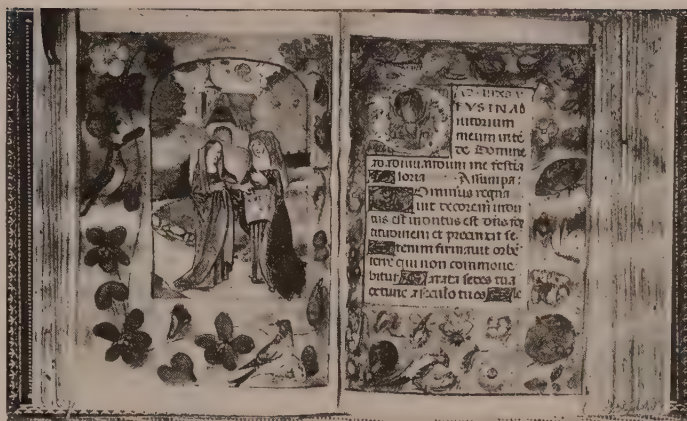 EVS IN AD
iutorium
meum inte
de Domine
me festia
loria Assumpa:
Ominus regna
uit decorem indu
tus est indutus est dns for
titudinem et precinxit se
tenim firmauit orbe
terre qui non commoue
bitur arata sedes tua
ex tunc a seculo tu es